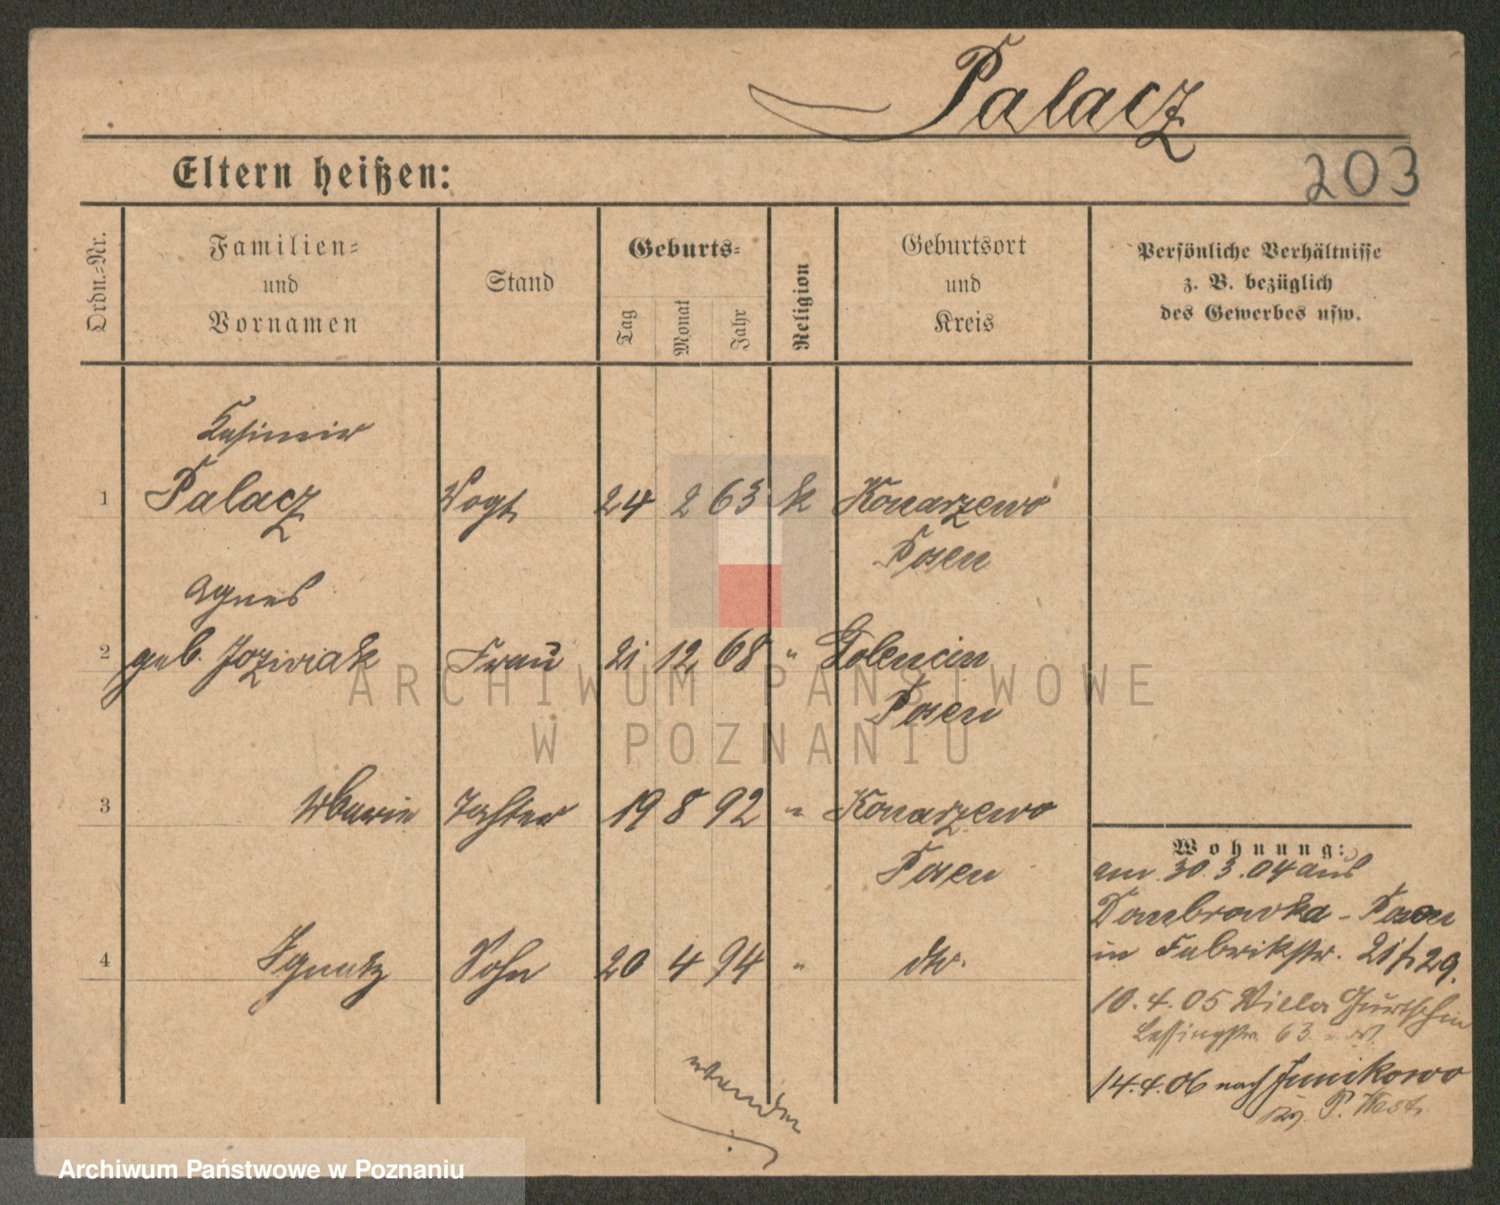 Palacz
203
Eltern heißen:
Ordn.-Nr.
Familien-
und
Vornamen
Stand
Geburts-
Tag
Monat
Jahr
Religion
Geburtsort
und
Kreis
Persönliche Verhältnisse
z. B. bezüglich
des Gewerbes usw.
Kasimir
1 Palacz Vogt 24 2 63 k Konarzewo
Posen
Agnes
2 geb. Joziwiak Frau 21 12 68 " Golencin
Posen
3 Marie Tochter 19 8 92 " Konarzewo
Posen
4 Ignatz Sohn 20 4 94 " do.
Wohnung:
am 30.3.04 aus
Dombrowka - Posen
in Fabrikstr. 21/29.
10.4.05 Villa Gurtschin
Lessingstr. 63
14.4.06 nach Junikowo
P. West.
ARCHIWUM PAŃSTWOWE
W POZNANIU
Archiwum Państwowe w Poznaniu